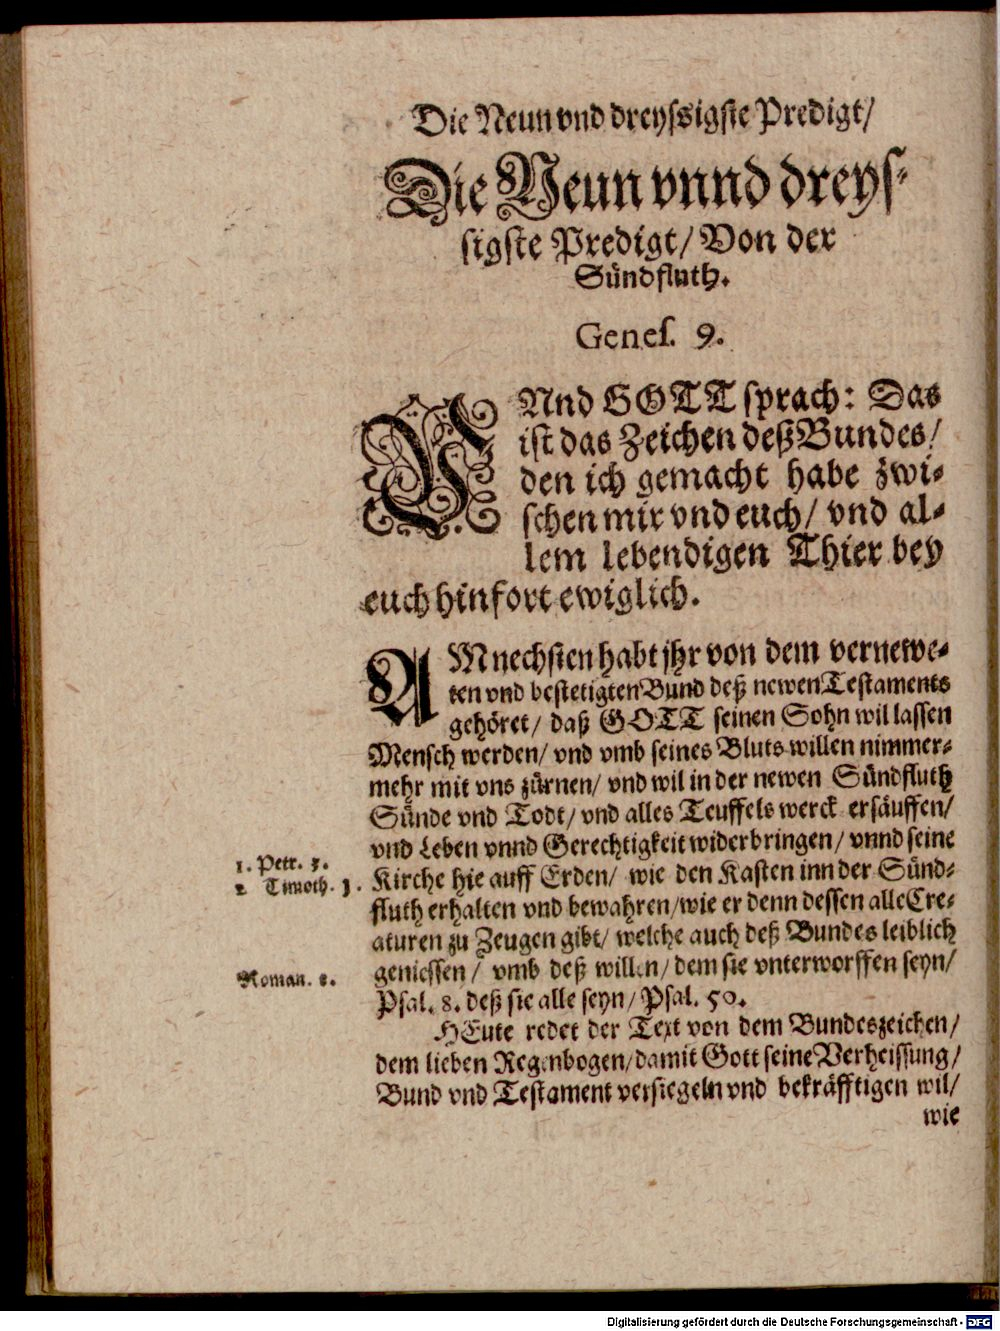 Die Neun vnd dreyssigste Predigt/
Die Neun vnnd dreys-
sigste Predigt/ Von der
Sündfluth.
Genes. 9.
VNnd GOTT sprach: Das
ist das Zeichen deß Bundes/
den ich gemacht habe zwi-
schen mir vnd euch/ vnd al-
lem lebendigen Thier bey
euch hinfort ewiglich.
AMnechsten habt jhr von dem vernewe-
ten vnd bestetigten Bund deß newen Testaments
gehöret/ daß GOTT seinen Sohn wil lassen
Mensch werden/ vnd vmb seines Bluts willen nimmer-
mehr mit vns zürnen/ vnd wil in der newen Sündfluth
Sünde vnd Todt/ vnd alles Teuffels werck ersäuffen/
vnd Leben vnnd Gerechtigkeit widerbringen/ vnnd seine
1. Petr. 3.
2 Timoth. 3.
Kirche hie auff Erden/ wie den Kasten inn der Sünd-
fluth erhalten vnd bewahren/ wie er denn dessen alle Cre-
aturen zu Zeugen gibt/ welche auch deß Bundes leiblich
Roman. 8.
geniessen/ vmb deß willen/ dem sie vnterworffen seyn/
Psal. 8. deß sie alle seyn/ Psal. 50.
HEute redet der Text von dem Bundeszeichen/
dem lieben Regenbogen/ damit Gott seine Verheissung/
Bund vnd Testament versiegeln vnd bekräfftigen wil/
wie
Digitalisierung gefördert durch die Deutsche Forschungsgemeinschaft - DFG